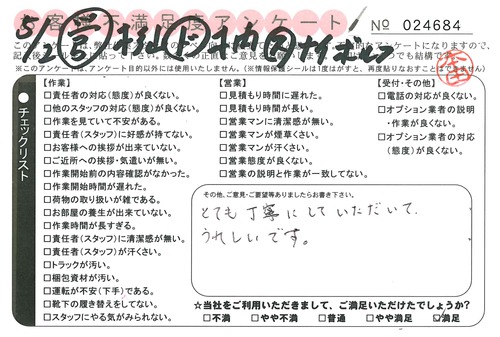 お客様不満足度アンケート
No 024684
5/2
※このアンケートは、アンケート目的以外には使用いたしません。(※情報保護シールは1度はがすと、再度貼りなおすことはできません)
チェックリスト
【作業】
□責任者の対応(態度)が良くない。
□他のスタッフの対応(態度)が良くない。
□作業を見ていて不安がある。
□責任者(スタッフ)に好感が持てない。
□お客様への挨拶が出来ていない。
□ご近所への挨拶・気遣いが無い。
□作業開始前の内容確認がなかった。
□作業開始時間が遅れた。
□荷物の取り扱いが雑である。
□お部屋の養生が出来ていない。
□作業時間が長すぎる。
□責任者(スタッフ)に清潔感が無い。
□責任者(スタッフ)が汗くさい。
□トラックが汚い。
□梱包資材が汚い。
□運転が不安(下手)である。
□靴下の履き替えをしてない。
□スタッフにやる気がみられない。
【営業】
□見積もり時間に遅れた。
□見積もり時間が長い。
□営業マンに清潔感が無い。
□営業マンが煙草くさい。
□営業マンが汗くさい。
□営業態度が良くない。
□営業の説明と作業が一致してない。
【受付・その他】
□電話の対応が良くない。
□オプション業者の説明
・作業が良くない。
□オプション業者の対応
(態度)が良くない。
その他、ご意見・ご要望等ありましたらお書き下さい。
とても丁寧にしていただいて、
うれしいです。
☆当社をご利用いただきまして、ご満足いただけたでしょうか?
□不満 □やや不満 □普通 □やや満足 ☑満足